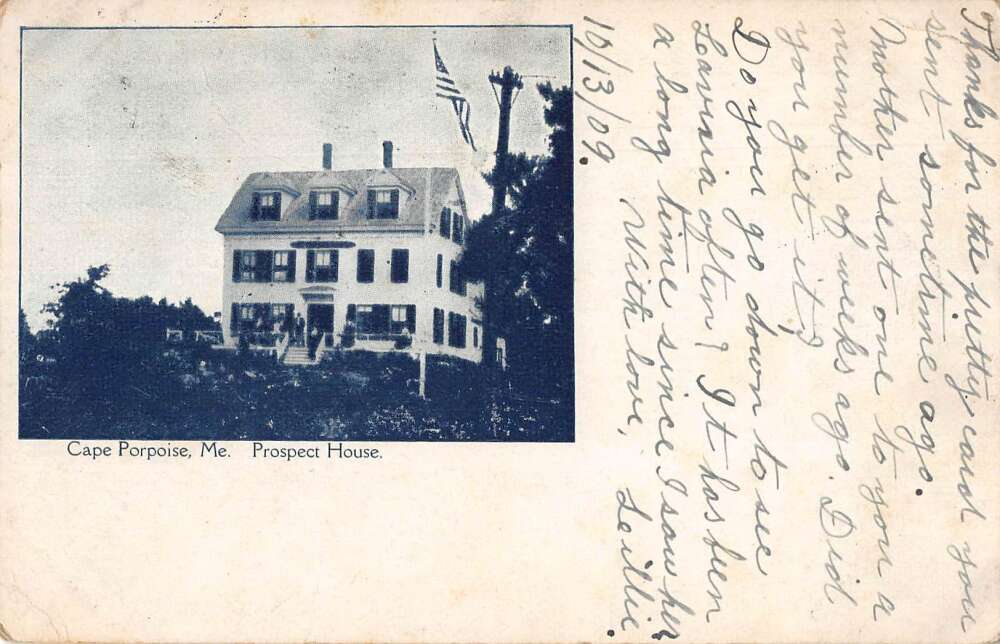 Cape Porpoise, Me. Prospect House.
Thanks for the pretty card you
sent sometime ago.
Mother sent one to you a
number of weeks ago. Did
you get it?
Do you go down to see
Lavinia often? It has been
a long time since I saw her
With love, Leillie.
10/13/09.